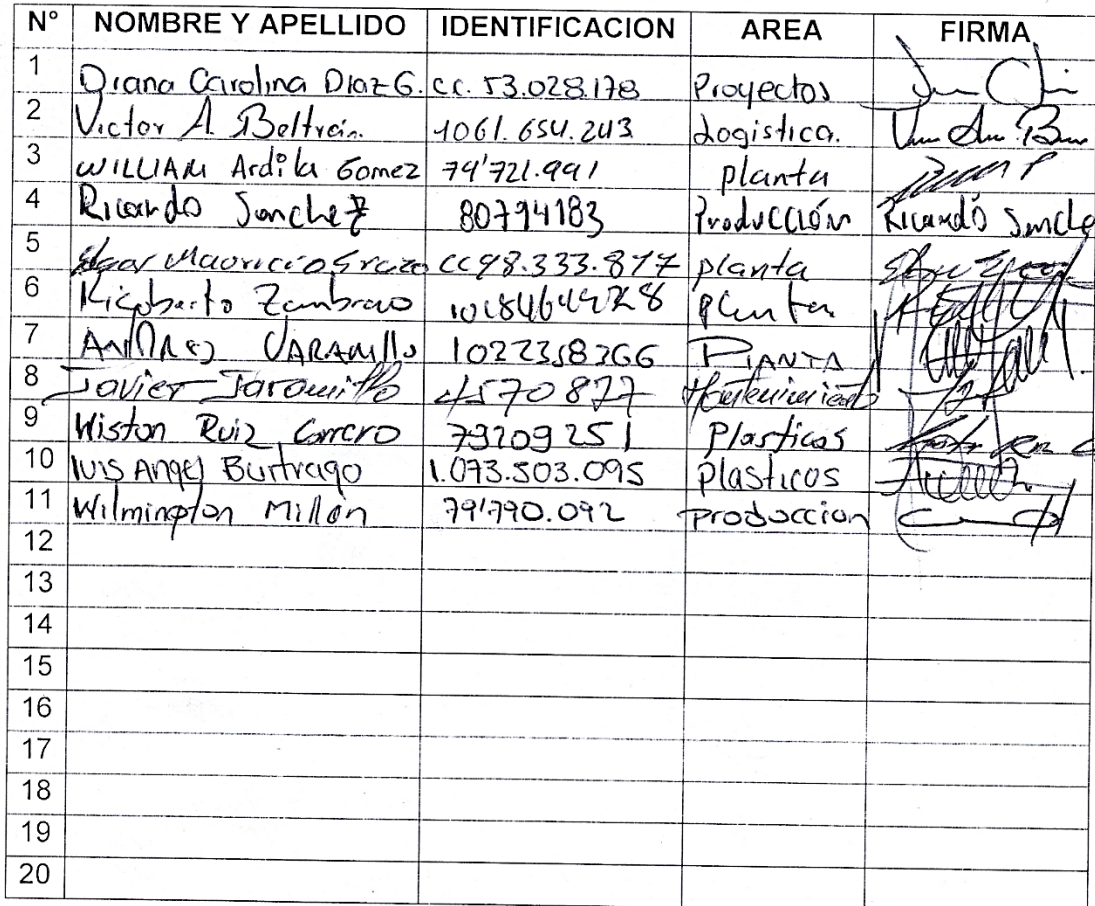 N° NOMBRE Y APELLIDO IDENTIFICACION AREA FIRMA
1 Diana Carolina Diaz G. cc. 53.028.178 Proyectos
2 Victor A. Beltrán. 1061.654.243 Logistica.
3 WILLIAM Ardila Gomez 79'721.991 planta
4 Ricardo Sanchez 80794183 Producción Ricardo Sanche
5 Mauricio CC98.333.877 planta
6 Rigoberto Zambrano planta
7 1022358366 PLANTA
8 Javier Jaramillo 4570877 Mantenimiento
9 Wiston Ruiz 79209251 Plasticos
10 luis Angel Buitrago 1.073.503.095 plasticos
11 Wilmington Millán 79'790.092 produccion
12
13
14
15
16
17
18
19
20